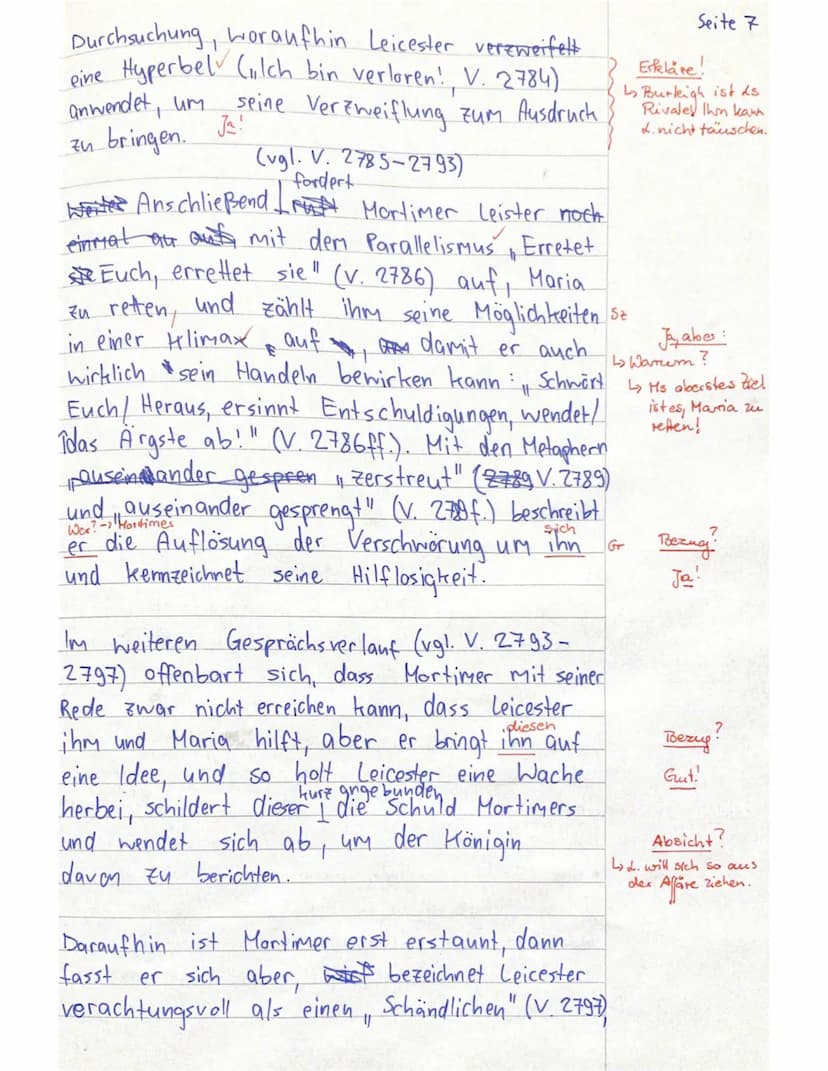 Seite 7
Durchsuchung, woraufhin Leicester verzweifelt
eine Hyperbel („Ich bin verloren!, V. 2784)
anwendet, um seine Verzweiflung zum Ausdruck
zu bringen.
Ja!
Erkläre!
↳ Burleigh ist Ls
Rivale! Ihm kann
L. nicht täuschen.
(vgl. V. 2785–2793)
fordert
Anschließend Mortimer Leister noch
einmal mit dem Parallelismus „Erretet
Euch, errettet sie" (V. 2786) auf, Maria
zu retten, und zählt ihm seine Möglichkeiten
Sz
in einer Klimax auf, damit er auch
wirklich sein Handeln bewirken kann: „Schwört
Euch/ Heraus, ersinnt Entschuldigungen, wendet/
das Ärgste ab!" (V. 2786ff.). Mit den Metaphern
Ja, aber:
↳ Warum?
↳ Ms oberstes Ziel
ist es, Maria zu
retten!
„auseinander gespren „zerstreut" (2789 V. 2789)
und „auseinander gesprengt" (V. f.) beschreibt
Wer? -> Mortimer
sich
er die Auflösung der Verschwörung um ihn
Gr
Bezug?
und kennzeichnet seine Hilflosigkeit.
Ja!
Im weiteren Gesprächsverlauf (vgl. V. 2793–
2797) offenbart sich, dass Mortimer mit seiner
Rede zwar nicht erreichen kann, dass Leicester
diesen
ihm und Maria hilft, aber er bringt ihn auf
Bezug?
eine Idee, und so holt Leicester eine Wache
Gut!
kurz angebunden
herbei, schildert dieser die Schuld Mortimers
und wendet sich ab, um der Königin
davon zu berichten.
Absicht?
↳ L. will sich so aus
der Affäre ziehen.
Daraufhin ist Mortimer erst erstaunt, dann
fasst er sich aber, bezeichnet Leicester
verachtungsvoll als einen „Schändlichen" (V. 2797)